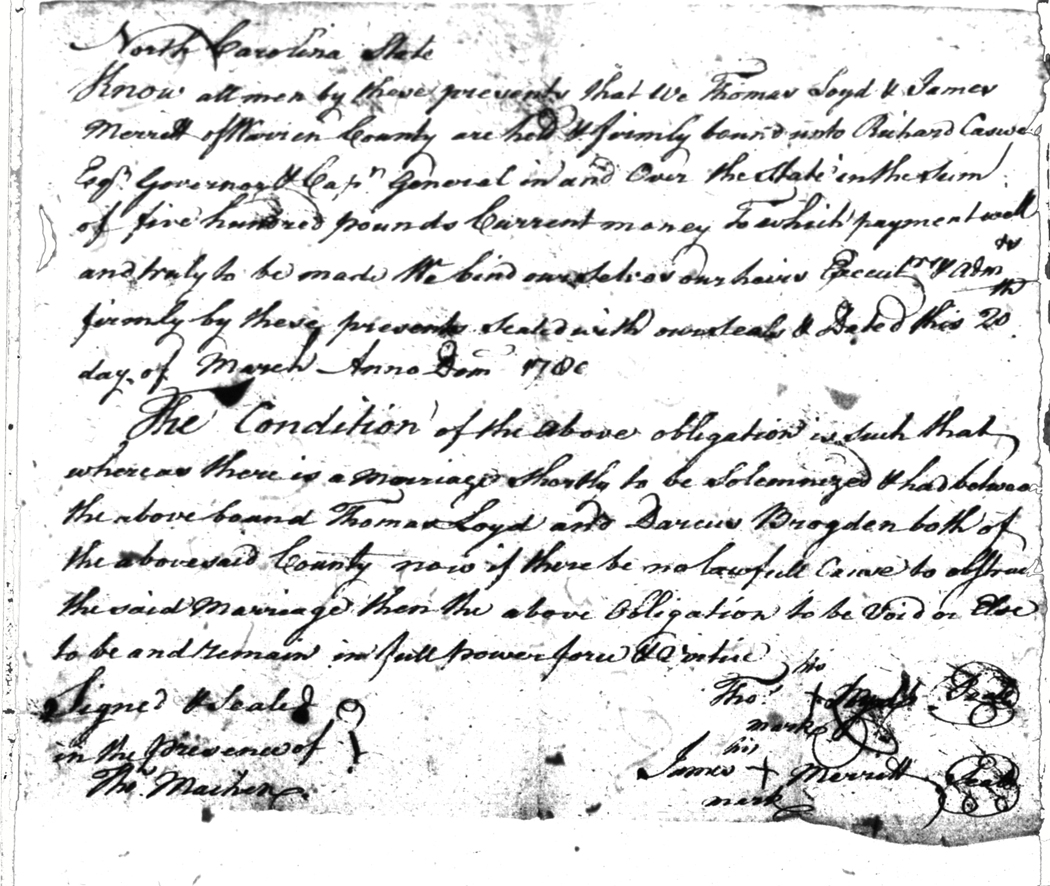 North Carolina State
Know all men by these presents that We Thomas Loyd & James
Merrett of Warren County are held & firmly bound unto Richard Caswel
Esqr. Governor & Capn. General in and Over the State in the Sum
of five hundred pounds Current money To which payment well
and truly to be made We bind our selves our heirs Executrs & Admrs
firmly by these presents Sealed with our seals & Dated this 20th
day of March Anno Dom 1780
The Condition of the above obligation is such that
whereas there is a marriage Shortly to be Solemnized & had betwee
the above bound Thomas Loyd and Darcus Brogden both of
the abovesaid County now if there be no lawfull Cause to obstruc
the said Marriage then the above Obligation to be Void or Else
to be and remain in full power force & Virtue
Signed & Sealed
in the presence of
Thos. Machen
Thos. his + mark Loyd Seal
James his + mark Merrett Seal